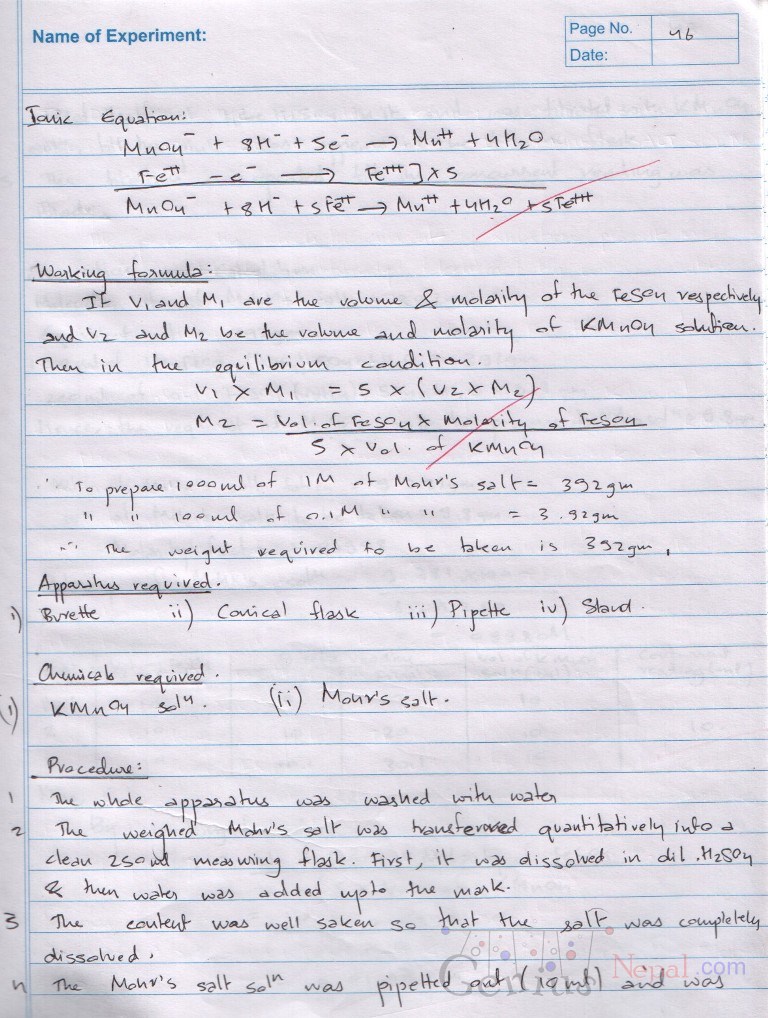 Name of Experiment:
Page No. 46
Date:
Ionic Equation:
MnO4⁻ + 8H⁻ + 5e⁻ → Mn⁺⁺ + 4H2O
Fe⁺⁺ – e⁻ → Fe⁺⁺⁺ ] x 5
MnO4⁻ + 8H⁻ + 5Fe⁺⁺ → Mn⁺⁺ + 4H2O + 5Fe⁺⁺⁺
Working formula:
If V1 and M1 are the volume & molarity of the FeSO4 respectively
and V2 and M2 be the volume and molarity of KMnO4 solution.
Then in the equilibrium condition.
V1 x M1 = 5 x (V2 x M2)
M2 = Vol. of FeSO4 x Molarity of FeSO4
5 x Vol. of KMnO4
To prepare 1000ml of 1M of Mohr's salt = 392gm
" " 100ml of 0.1M " " = 3.92gm
∴ The weight required to be taken is 392gm,
Apparatus required.
i) Burette ii) Conical flask iii) Pipette iv) Stand.
Chemicals required.
(i) KMnO4 solⁿ. (ii) Mohr's salt.
Procedure:
1 The whole apparatus was washed with water
2 The weighed Mohr's salt was transferred quantitatively into a
clean 250ml measuring flask. First, it was dissolved in dil. H2SO4
& then water was added upto the mark.
3 The content was well saken so that the salt was completely
dissolved.
4 The Mohr's salt solⁿ was pipetted out (10ml) and was
Genius Nepal.com